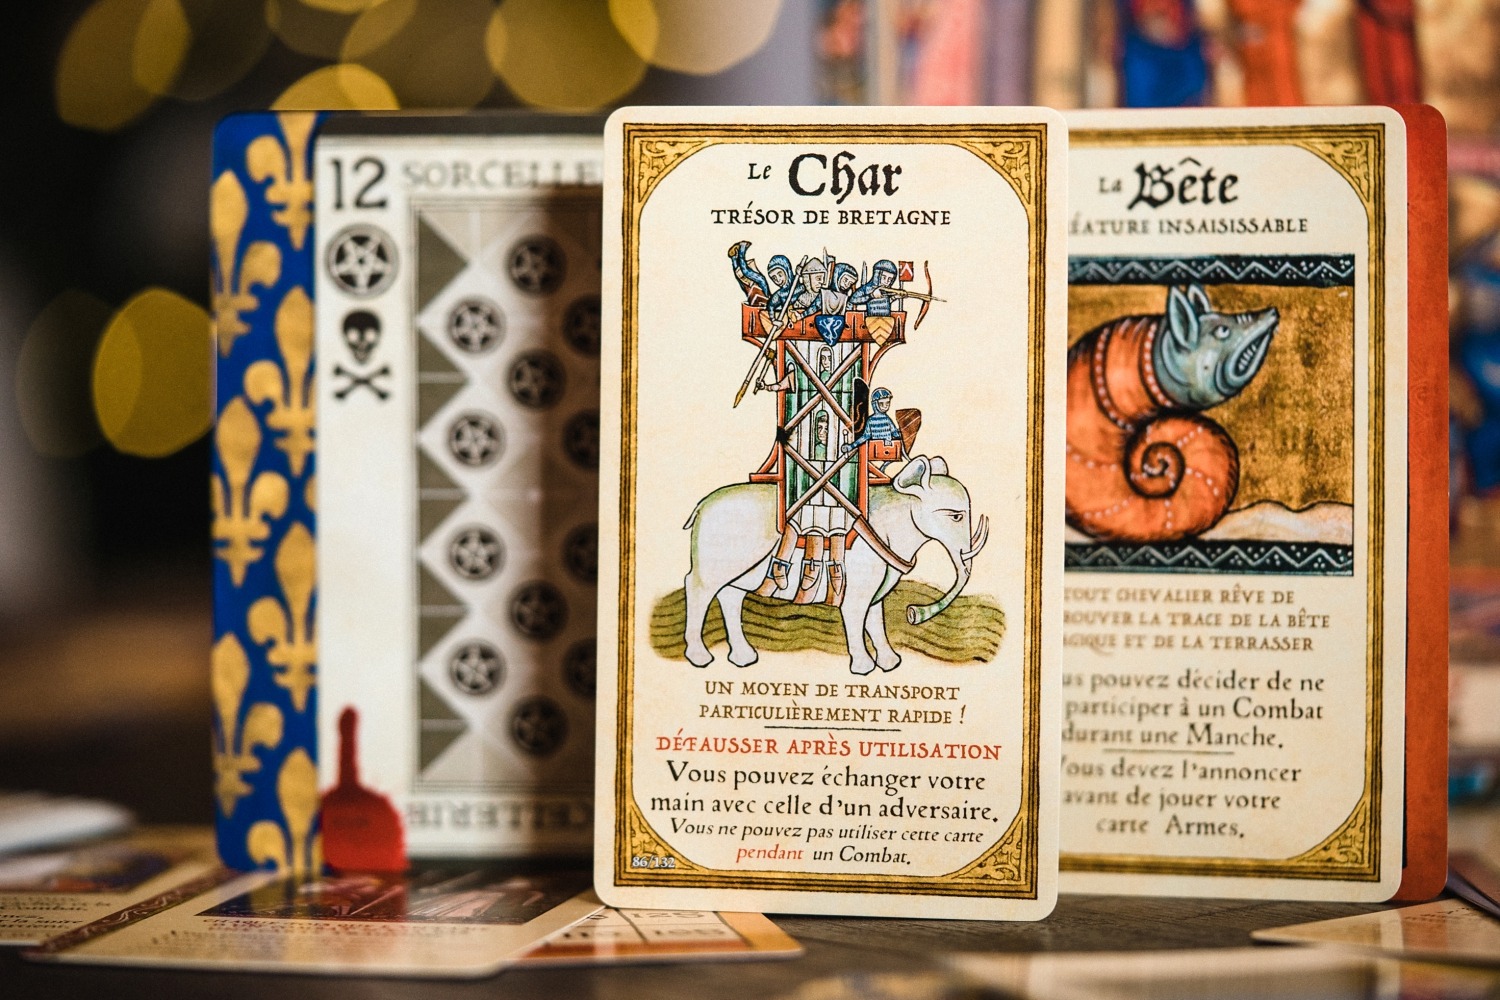 12
SORCELLE
Le Char
TRÉSOR DE BRETAGNE
UN MOYEN DE TRANSPORT
PARTICULIÈREMENT RAPIDE !
DÉFAUSSER APRÈS UTILISATION
Vous pouvez échanger votre
main avec celle d'un adversaire.
Vous ne pouvez pas utiliser cette carte
pendant un Combat.
86/132
La Bête
ÉATURE INSAISISSABLE
TOUT CHEVALIER RÊVE DE
ROUVER LA TRACE DE LA BÊTE
AGIQUE ET DE LA TERRASSER
us pouvez décider de ne
participer à un Combat
durant une Manche.
Vous devez l'annoncer
avant de jouer votre
carte Armes.